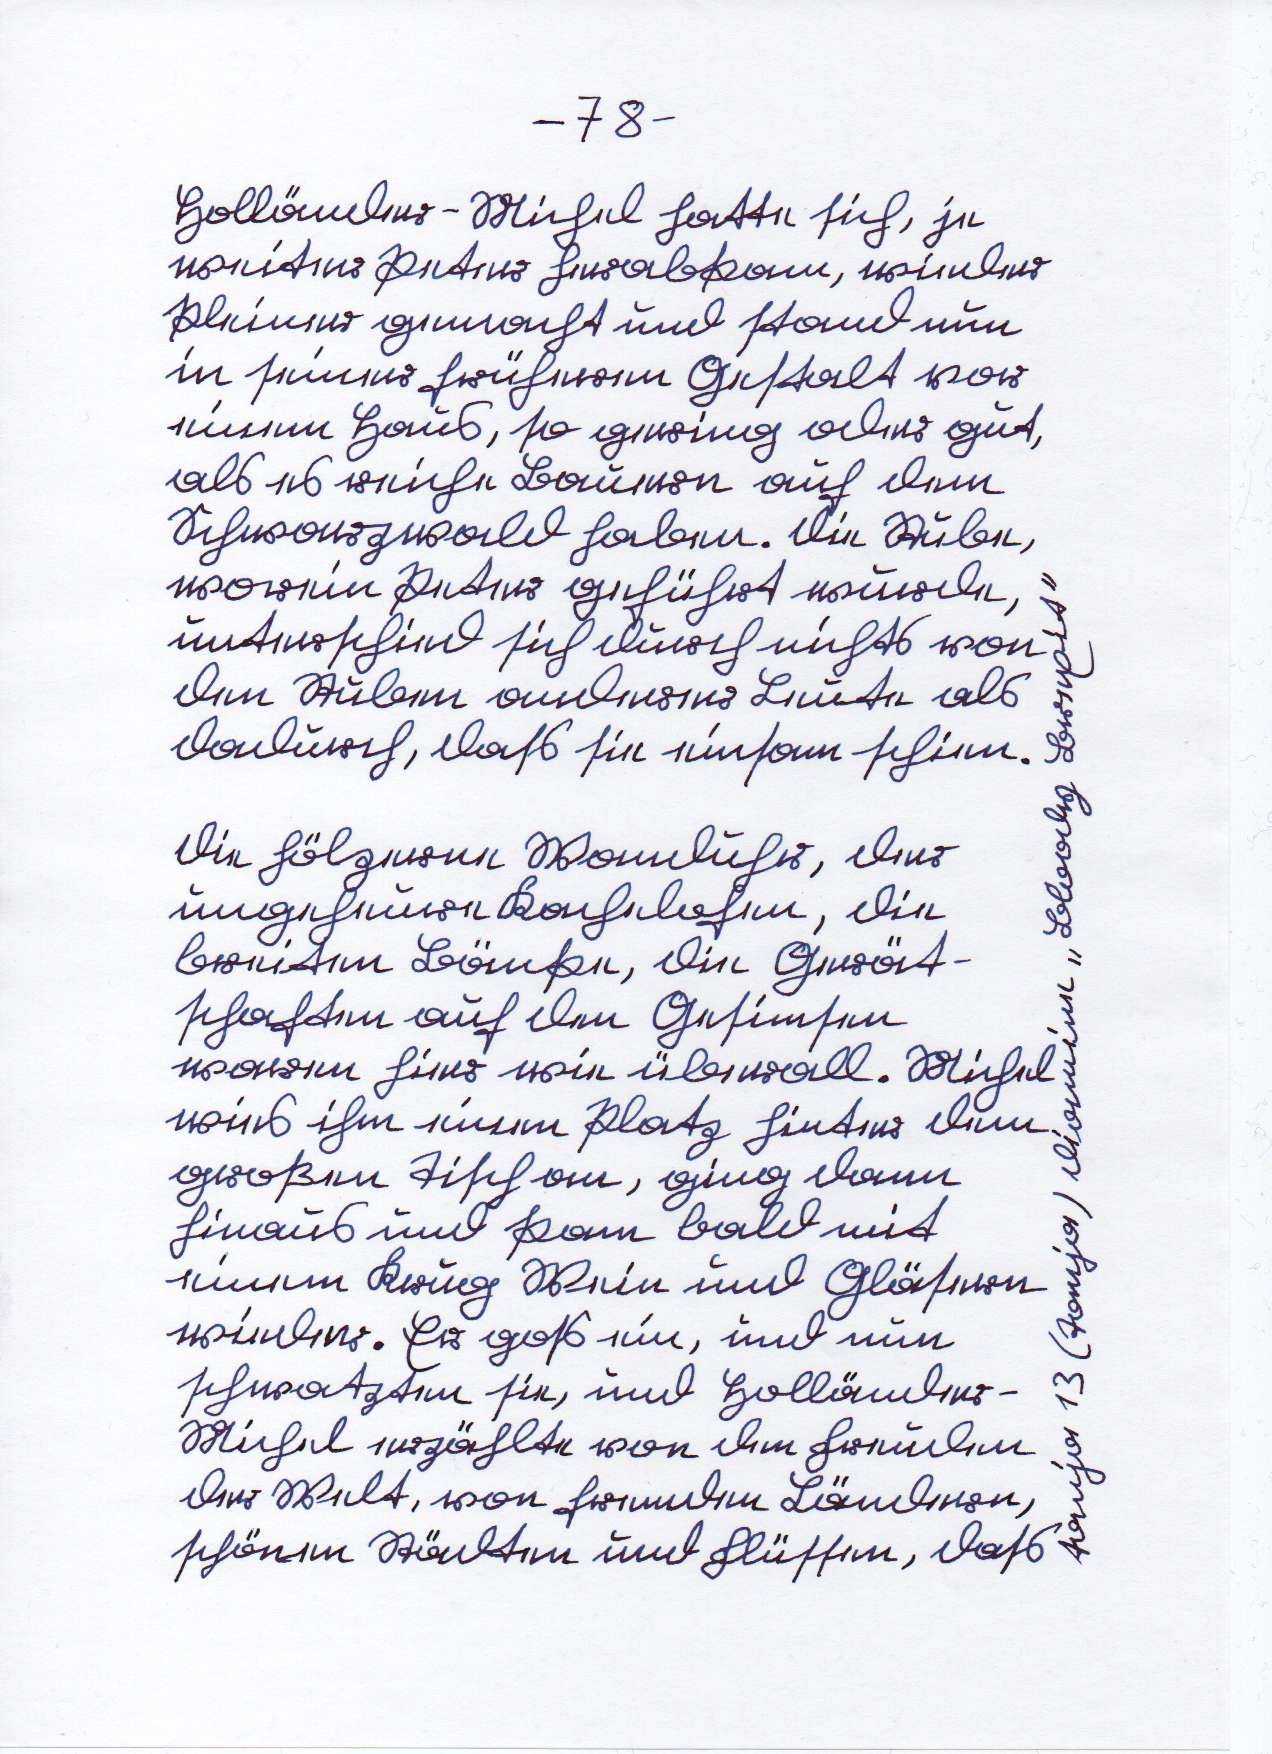 -78-
Holländer-Michel hatte sich, je
weiter Peter herabkam, wieder
kleiner gemacht und stand nun
in seiner früheren Gestalt vor
einem Haus, so gering oder gut,
als es reiche Bauern auf dem
Schwarzwald haben. Die Stube,
worein Peter geführt wurde,
unterschied sich durch nichts von
den Stuben anderer Leute als
dadurch, daß sie einsam schien.
Die hölzerne Wanduhr, der
ungeheure Kachelofen, die
breiten Bänke, die Gerät-
schaften auf den Gesimsen
waren hier wie überall. Michel
wies ihm einen Platz hinter dem
großen Tisch an, ging dann
hinaus und kam bald mit
einem Krug Wein und Gläsern
wieder. Er goß ein, und nun
schwatzten sie, und Holländer-
Michel erzählte von den Freuden
der Welt, von fremden Ländern,
schönen Städten und Flüssen, daß
13 (Tanja)